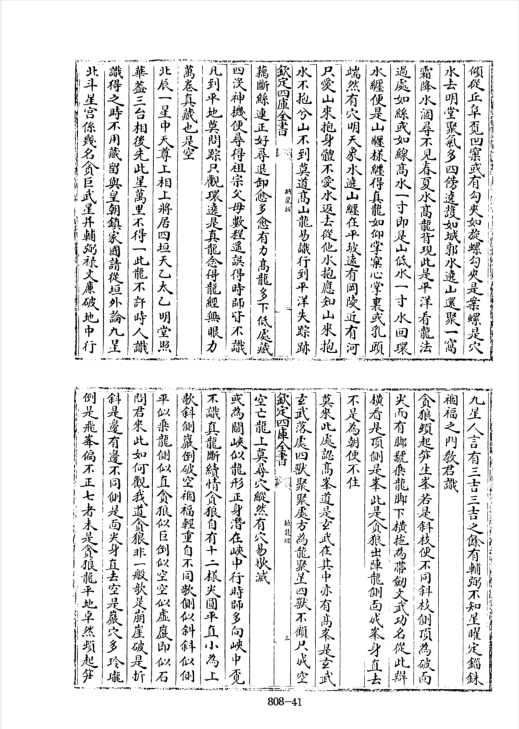 傾從丘阜覓凹窠或有勾夾如旋螺勾夾是案螺是穴
水去明堂聚氣多四傍遶護如城郭水遶山還聚一窩
霜降水涸尋不見春夏水高龍背現此是平洋看龍法
過處如絲或如線高水一寸即是山低水一寸水回環
水纏便是山纏樣纏得真龍如仰掌窠心掌裏或乳頭
端然有穴明天象水遶山纏在平坡遠有岡陵近有河
只愛山來抱身體不愛水返去從他水抱應知山來抱
水不抱兮山不到莫道高山龍易識行到平洋失踪跡
欽定四庫全書
撼龍經
藕斷絲連正好尋退卸愈多愈有力高龍多下低處藏
四沒神機便尋得祖宗父母數程遥誤得時師皆不識
凡到平地莫問踪只觀環遶是真龍念得龍經無眼力
萬卷真藏也是空
北辰一星中天尊上相上將居四垣天乙太乙明堂照
華蓋三台相後先此星萬里不得一此龍不許時人識
識得之時不用藏留與皇朝鎮家國請從垣外論九星
北斗星宫係幾名貪巨武星并輔弼祿文廉破地中行
九星人言有三吉三吉之餘有輔弼不知星曜定錙銖
禍福之門教君識
貪狼頓起笋生峯若是斜枝便不同斜枝側頂為破面
尖而有脚號乘龍脚下横拖為帶劒文武功名從此辨
横看是頂側是峯此是貪狼出陣龍側面成峯身直去
不是為朝便不住
莫來此處認髙峯道是玄武在其中亦有髙峯是玄武
玄武落處四獸聚聚處方為龍聚星四獸不顧只成空
欽定四庫全書
撼龍經
空亡龍上莫尋穴縱然有穴易歇滅
或為關峽似龍形正身潛在峽中行時師多向峽中覓
不識真龍斷續情貪狼自有十二様尖圓平直小為上
欹斜側巖倒破空禍福輕重自不同欹側似斜斜似側
平似乘龍側似直貪狼似巨倒似空空似虛巖即似石
問君來此如何觀我道貪狼非一般欹是崩崖破是折
斜是邊有邊不同側是面尖身直去空是巖穴多玲瓏
倒是飛峯偏不正七者未是貪狼龍平地卓然頓起笋
808-41